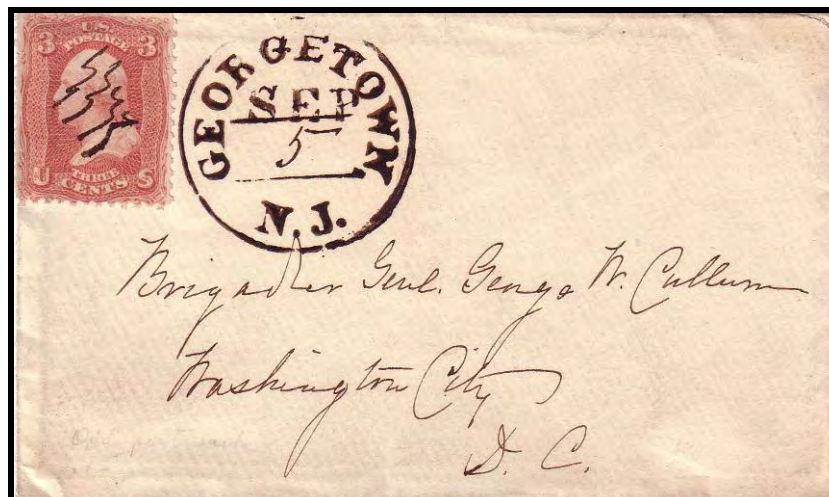 U.S.
POSTAGE
3 3
U THREE S
CENTS
GEORGETOWN
SEP
5
N.J.
Brigadier Genl. George W. Cullum
Washington City
D. C.